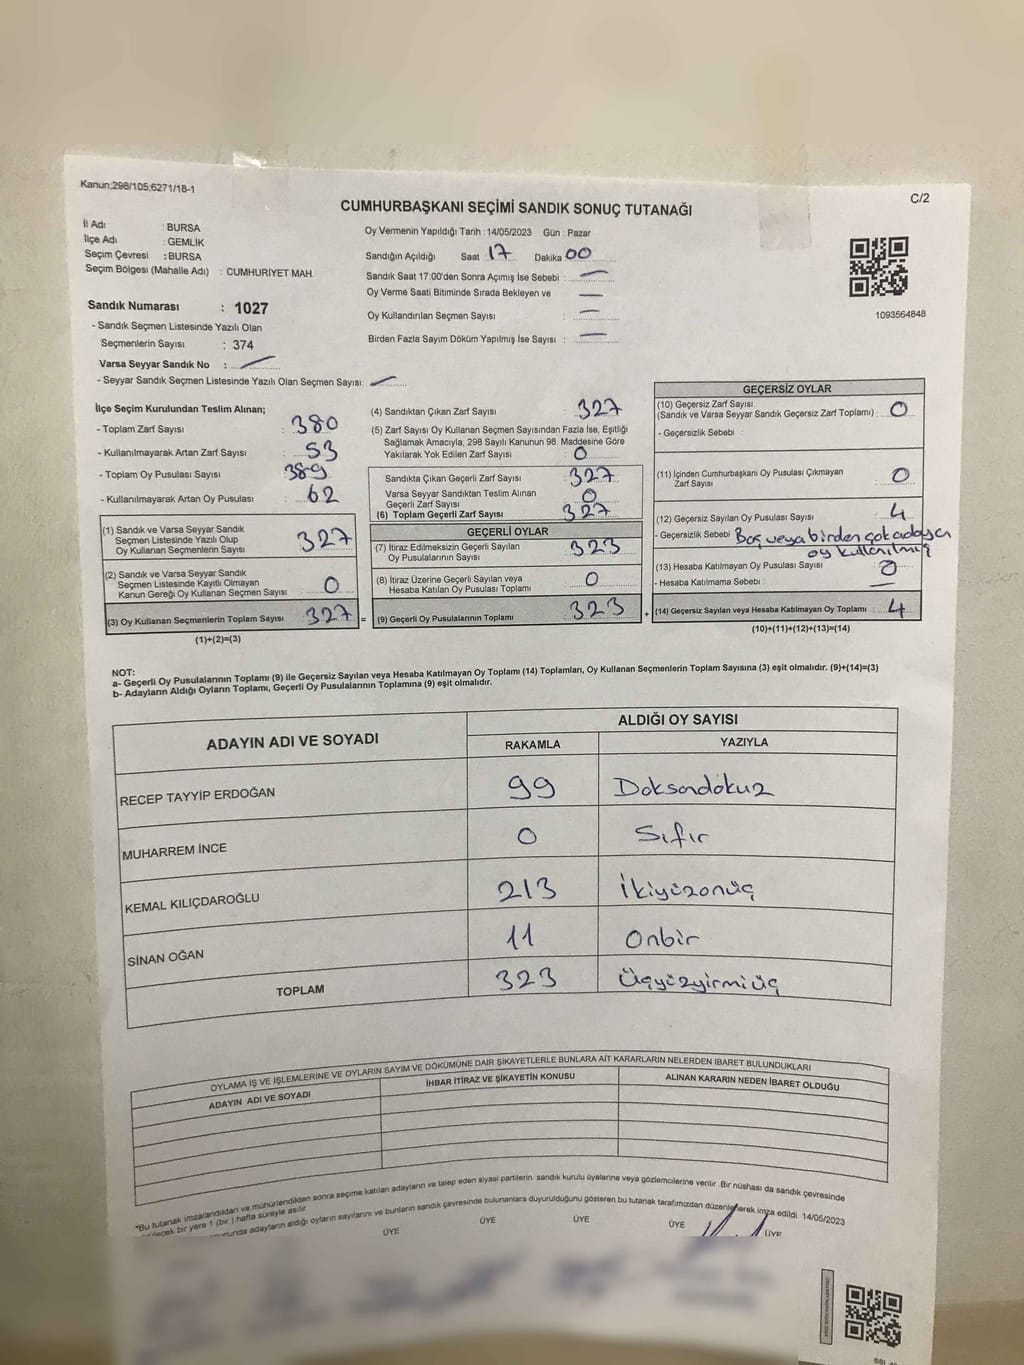 Kanun:298/105;6271/18-1
C/2
CUMHURBAŞKANI SEÇİMİ SANDIK SONUÇ TUTANAĞI
İl Adı : BURSA
İlçe Adı : GEMLİK
Seçim Çevresi : BURSA
Seçim Bölgesi (Mahalle Adı) : CUMHURİYET MAH.
Oy Vermenin Yapıldığı Tarih : 14/05/2023 Gün : Pazar
Sandığın Açıldığı Saat 17 Dakika 00
Sandık Saat 17:00'den Sonra Açımış İse Sebebi : —
Oy Verme Saati Bitiminde Sırada Bekleyen ve —
Oy Kullandırılan Seçmen Sayısı —
Birden Fazla Sayım Döküm Yapılmış İse Sayısı : —
1093564848
Sandık Numarası : 1027
- Sandık Seçmen Listesinde Yazılı Olan
Seçmenlerin Sayısı : 374
Varsa Seyyar Sandık No : —
- Seyyar Sandık Seçmen Listesinde Yazılı Olan Seçmen Sayısı: —
İlçe Seçim Kurulundan Teslim Alınan;
- Toplam Zarf Sayısı : 380
- Kullanılmayarak Artan Zarf Sayısı : 53
- Toplam Oy Pusulası Sayısı : 389
- Kullanılmayarak Artan Oy Pusulası : 62
(1) Sandık ve Varsa Seyyar Sandık
Seçmen Listesinde Yazılı Olup
Oy Kullanan Seçmenlerin Sayısı : 327
(2) Sandık ve Varsa Seyyar Sandık
Seçmen Listesinde Kayıtlı Olmayan
Kanun Gereği Oy Kullanan Seçmen Sayısı : 0
(3) Oy Kullanan Seçmenlerin Toplam Sayısı : 327
(1)+(2)=(3)
(4) Sandıktan Çıkan Zarf Sayısı : 327
(5) Zarf Sayısı Oy Kullanan Seçmen Sayısından Fazla İse, Eşitliği
Sağlamak Amacıyla, 298 Sayılı Kanunun 98. Maddesine Göre
Yakılarak Yok Edilen Zarf Sayısı : 0
Sandıkta Çıkan Geçerli Zarf Sayısı : 327
Varsa Seyyar Sandıktan Teslim Alınan
Geçerli Zarf Sayısı : 0
(6) Toplam Geçerli Zarf Sayısı : 327
GEÇERLİ OYLAR
(7) İtiraz Edilmeksizin Geçerli Sayılan
Oy Pusulalarının Sayısı : 323
(8) İtiraz Üzerine Geçerli Sayılan veya
Hesaba Katılan Oy Pusulası Toplamı : 0
= (9) Geçerli Oy Pusulalarının Toplamı : 323
GEÇERSİZ OYLAR
(10) Geçersiz Zarf Sayısı
(Sandık ve Varsa Seyyar Sandık Geçersiz Zarf Toplamı) : 0
- Geçersizlik Sebebi :
(11) İçinden Cumhurbaşkanı Oy Pusulası Çıkmayan
Zarf Sayısı : 0
(12) Geçersiz Sayılan Oy Pusulası Sayısı : 4
- Geçersizlik Sebebi Boş veya birden çok adaya
oy kullanılmış
(13) Hesaba Katılmayan Oy Pusulası Sayısı : 0
- Hesaba Katılmama Sebebi : —
+ (14) Geçersiz Sayılan veya Hesaba Katılmayan Oy Toplamı : 4
(10)+(11)+(12)+(13)=(14)
NOT:
a- Geçerli Oy Pusulalarının Toplamı (9) ile Geçersiz Sayılan veya Hesaba Katılmayan Oy Toplamı (14) Toplamları, Oy Kullanan Seçmenlerin Toplam Sayısına (3) eşit olmalıdır. (9)+(14)=(3)
b- Adayların Aldığı Oyların Toplamı, Geçerli Oy Pusulalarının Toplamına (9) eşit olmalıdır.
ADAYIN ADI VE SOYADI
ALDIĞI OY SAYISI
RAKAMLA YAZIYLA
RECEP TAYYİP ERDOĞAN 99 Doksandokuz
MUHARREM İNCE 0 Sıfır
KEMAL KILIÇDAROĞLU 213 İkiyüzonüç
SİNAN OĞAN 11 Onbir
TOPLAM 323 Üçyüzyirmiüç
OYLAMA İŞ VE İŞLEMLERİNE VE OYLARIN SAYIM VE DÖKÜMÜNE DAİR ŞİKAYETLERLE BUNLARA AİT KARARLARIN NELERDEN İBARET BULUNDUKLARI
ADAYIN ADI VE SOYADI İHBAR İTİRAZ VE ŞİKAYETİN KONUSU ALINAN KARARIN NEDEN İBARET OLDUĞU
*Bu tutanak imzalandıktan ve mühürlendikten sonra seçime katılan adayların ve talep eden siyasi partilerin sandık kurulu üyelerine veya gözlemcilerine verilir. Bir nüshası da sandık çevresinde
bir yere 1 (bir) hafta süreyle asılır
adayların aldığı oyların sayılarını ve bunların sandık çevresinde bulunanlara duyurulduğunu gösteren bu tutanak tarafımızdan düzenlenerek imza edildi. 14/05/2023
ÜYE ÜYE ÜYE ÜYE ÜYE